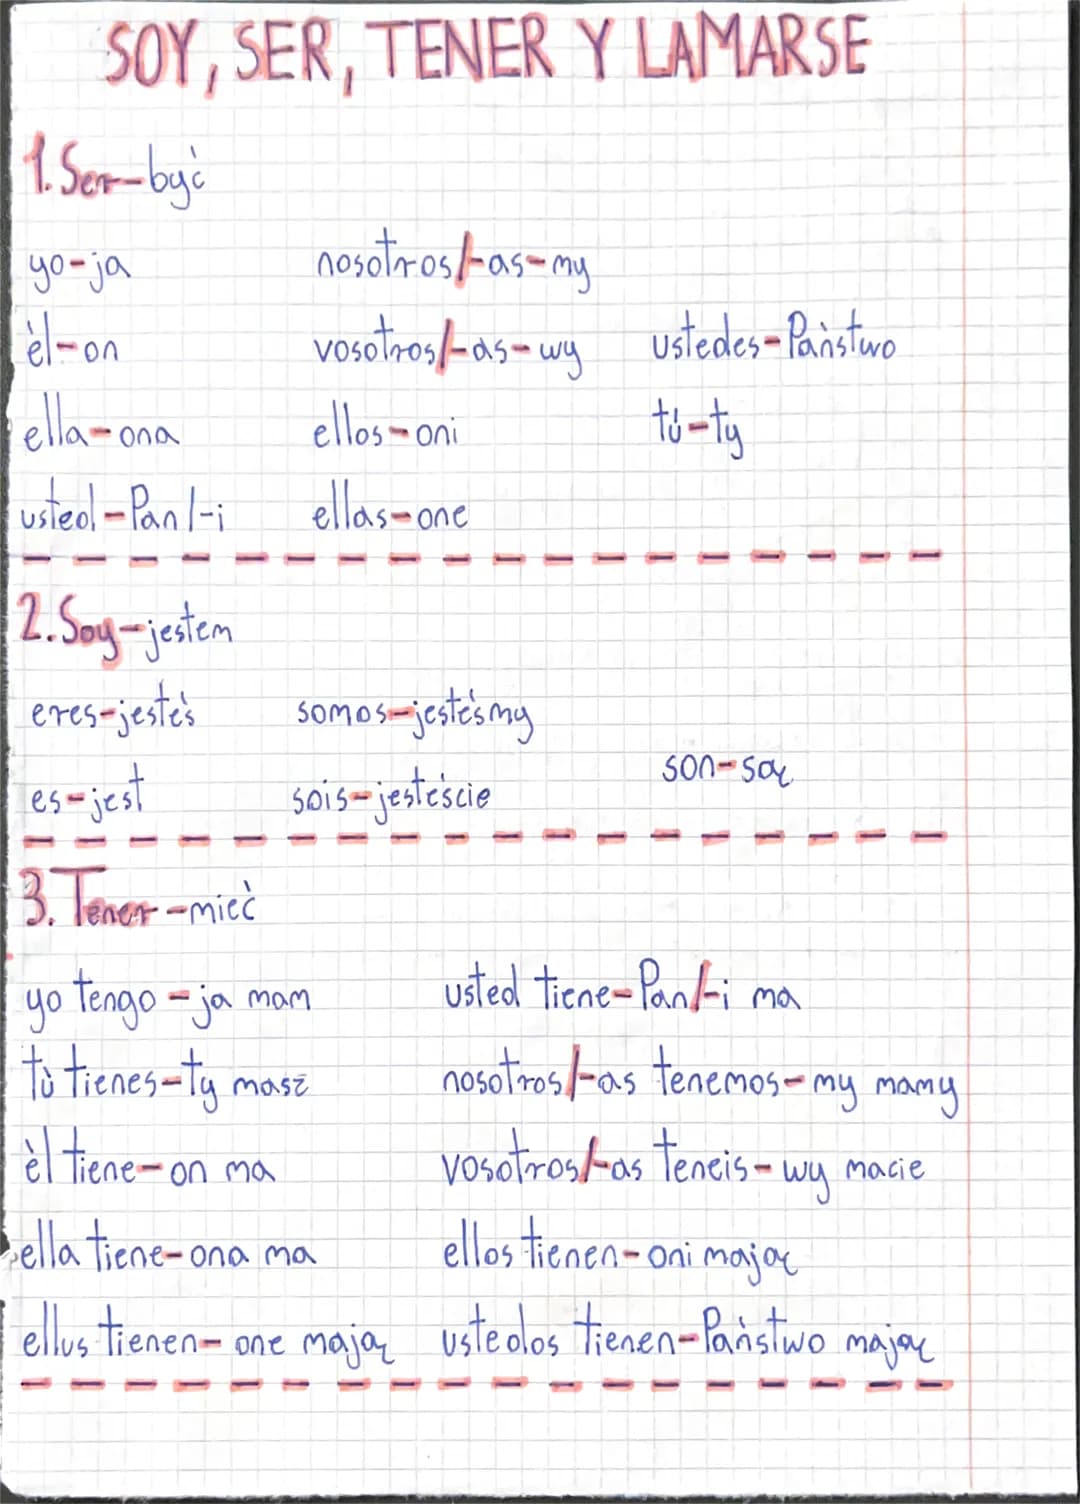 SOY, SER, TENER Y LAMARSE
1. Ser-być
yo-ja nosotros/-as-my
èl-on vosotros/-as-wy ustedes-Państwo
ella-ona ellos-oni tú-ty
usted-Pan/-i ellas-one
2. Soy-jestem
eres-jesteś somos-jesteśmy
es-jest sois-jesteście son-są
3. Tener-mieć
yo tengo-ja mam usted tiene-Pan/-i ma
tù tienes-ty masz nosotros/-as tenemos-my mamy
èl tiene-on ma vosotros/-as teneis-wy macie
ella tiene-ona ma ellos tienen-oni mają
ellus tienen-one mają ustedos tienen-Państwo mają